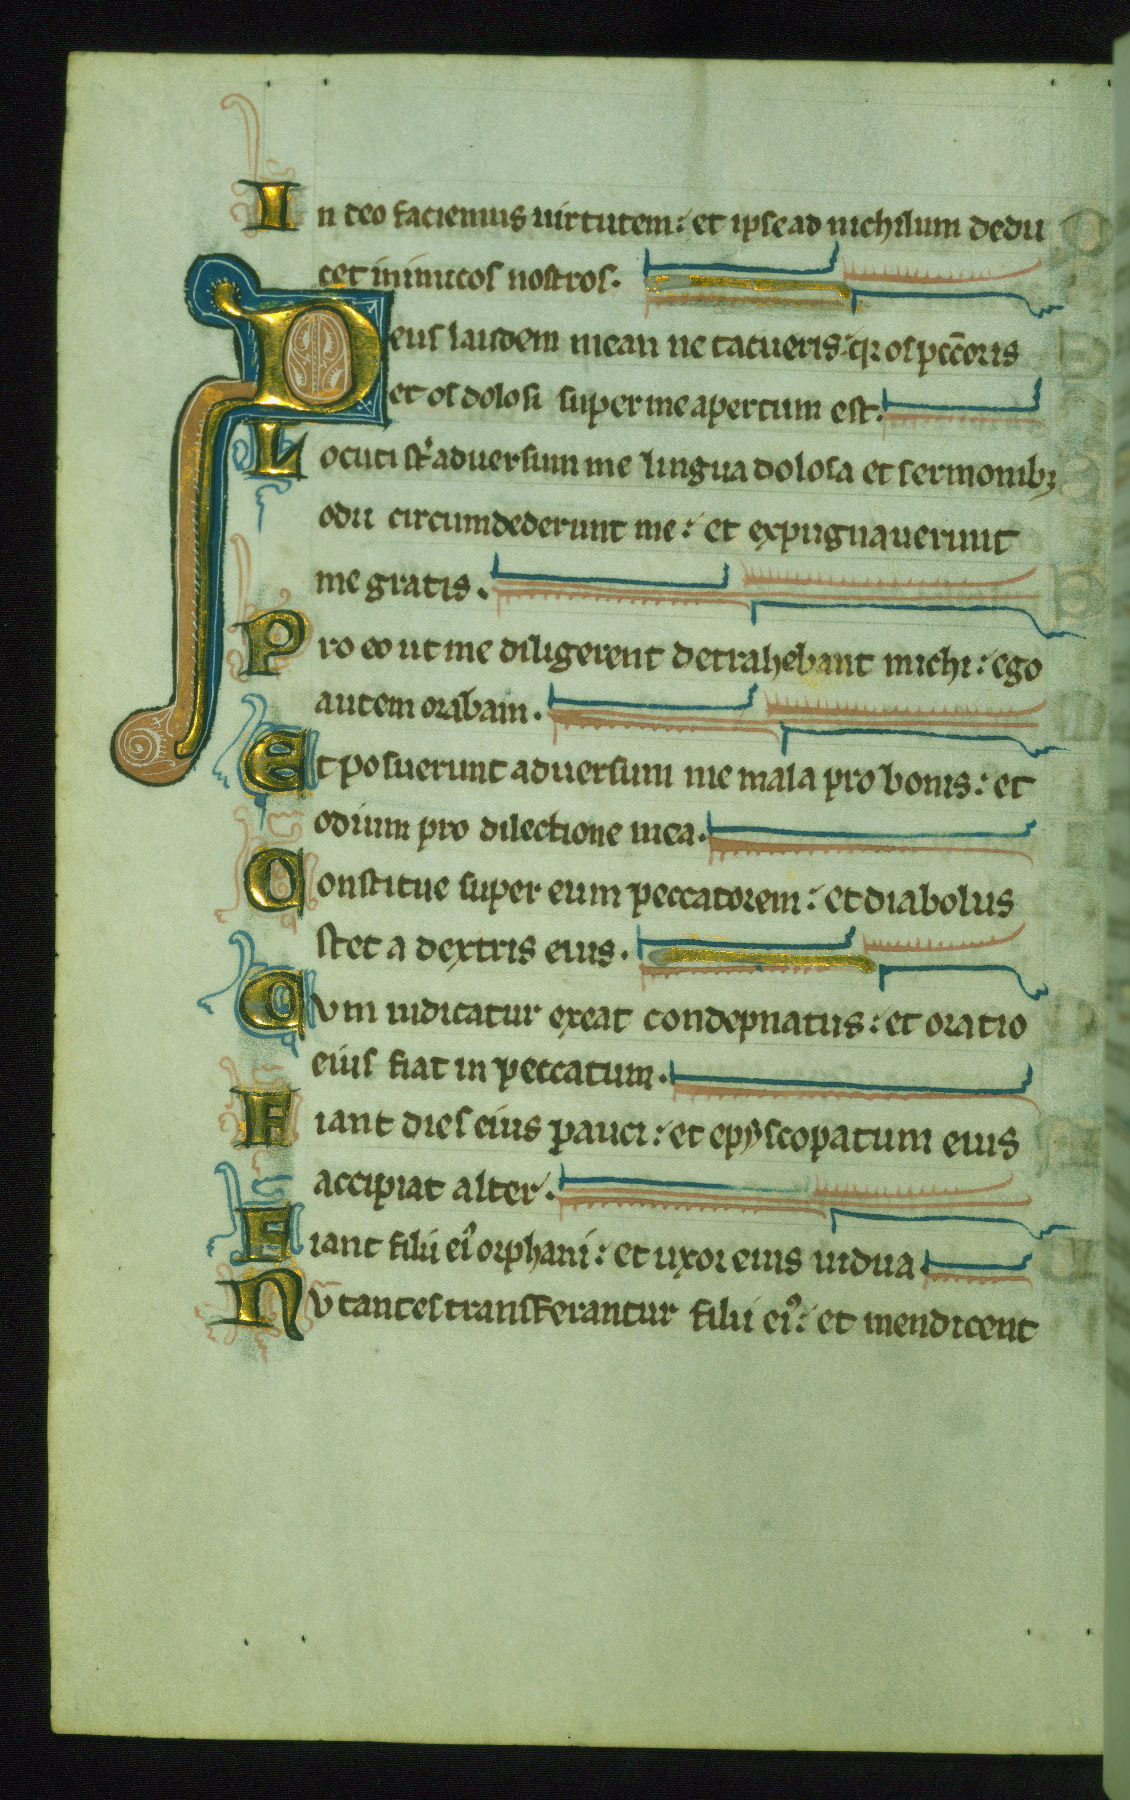 In deo faciemus uirtutem: et ipse ad nichilum dedu
cet inimicos nostros.
Deus laudem meam ne tacueris: qr os pccoris
et os dolosi super me apertum est.
Locuti st aduersum me lingua dolosa et sermonibꝫ
odii circumdederunt me: et expugnauerunt
me gratis.
Pro eo ut me diligerent detrahebant michi: ego
autem orabam.
Et posuerunt aduersum me mala pro bonis: et
odium pro dilectione mea.
Constitue super eum peccatorem: et diabolus
stet a dextris eius.
Cvm iudicatur exeat condepnatus: et oratio
eius fiat in peccatum.
Fiant dies eius pauci: et epyscopatum eius
accipiat alter.
Fiant filii ei orphani: et uxor eius uidua.
Nv̄tantes transferantur filii ei: et mendicent